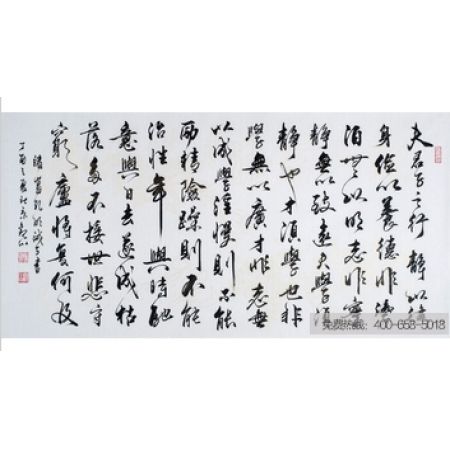 夫君子之行靜以脩
身儉以養德非澹
泊無以明志非寧
靜無以致遠夫學須
靜也才須學也非
學無以廣才非志無
以成學淫慢則不能
精險躁則不能
治性年與時馳
意與日去遂成枯
落多不接世悲守
窮廬將復何及
諸葛孔明誡子書
丁酉之夏於京
免费热线：400-658-5018